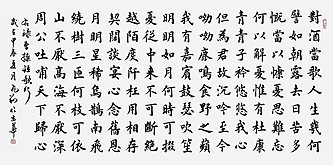 對酒當歌人生幾何
譬如朝露去日苦多
慨當以慷憂思難忘
何以解憂惟有杜康
青青子衿悠悠我心
但為君故沉吟至今
呦呦鹿鳴食野之蘋
我有嘉賓鼓瑟吹笙
明明如月何時可掇
憂從中來不可斷絕
越陌度阡枉用相存
契闊談讌心念舊恩
月明星稀烏鵲南飛
繞樹三匝何枝可依
山不厭高海不厭深
周公吐哺天下歸心
曹操短歌行